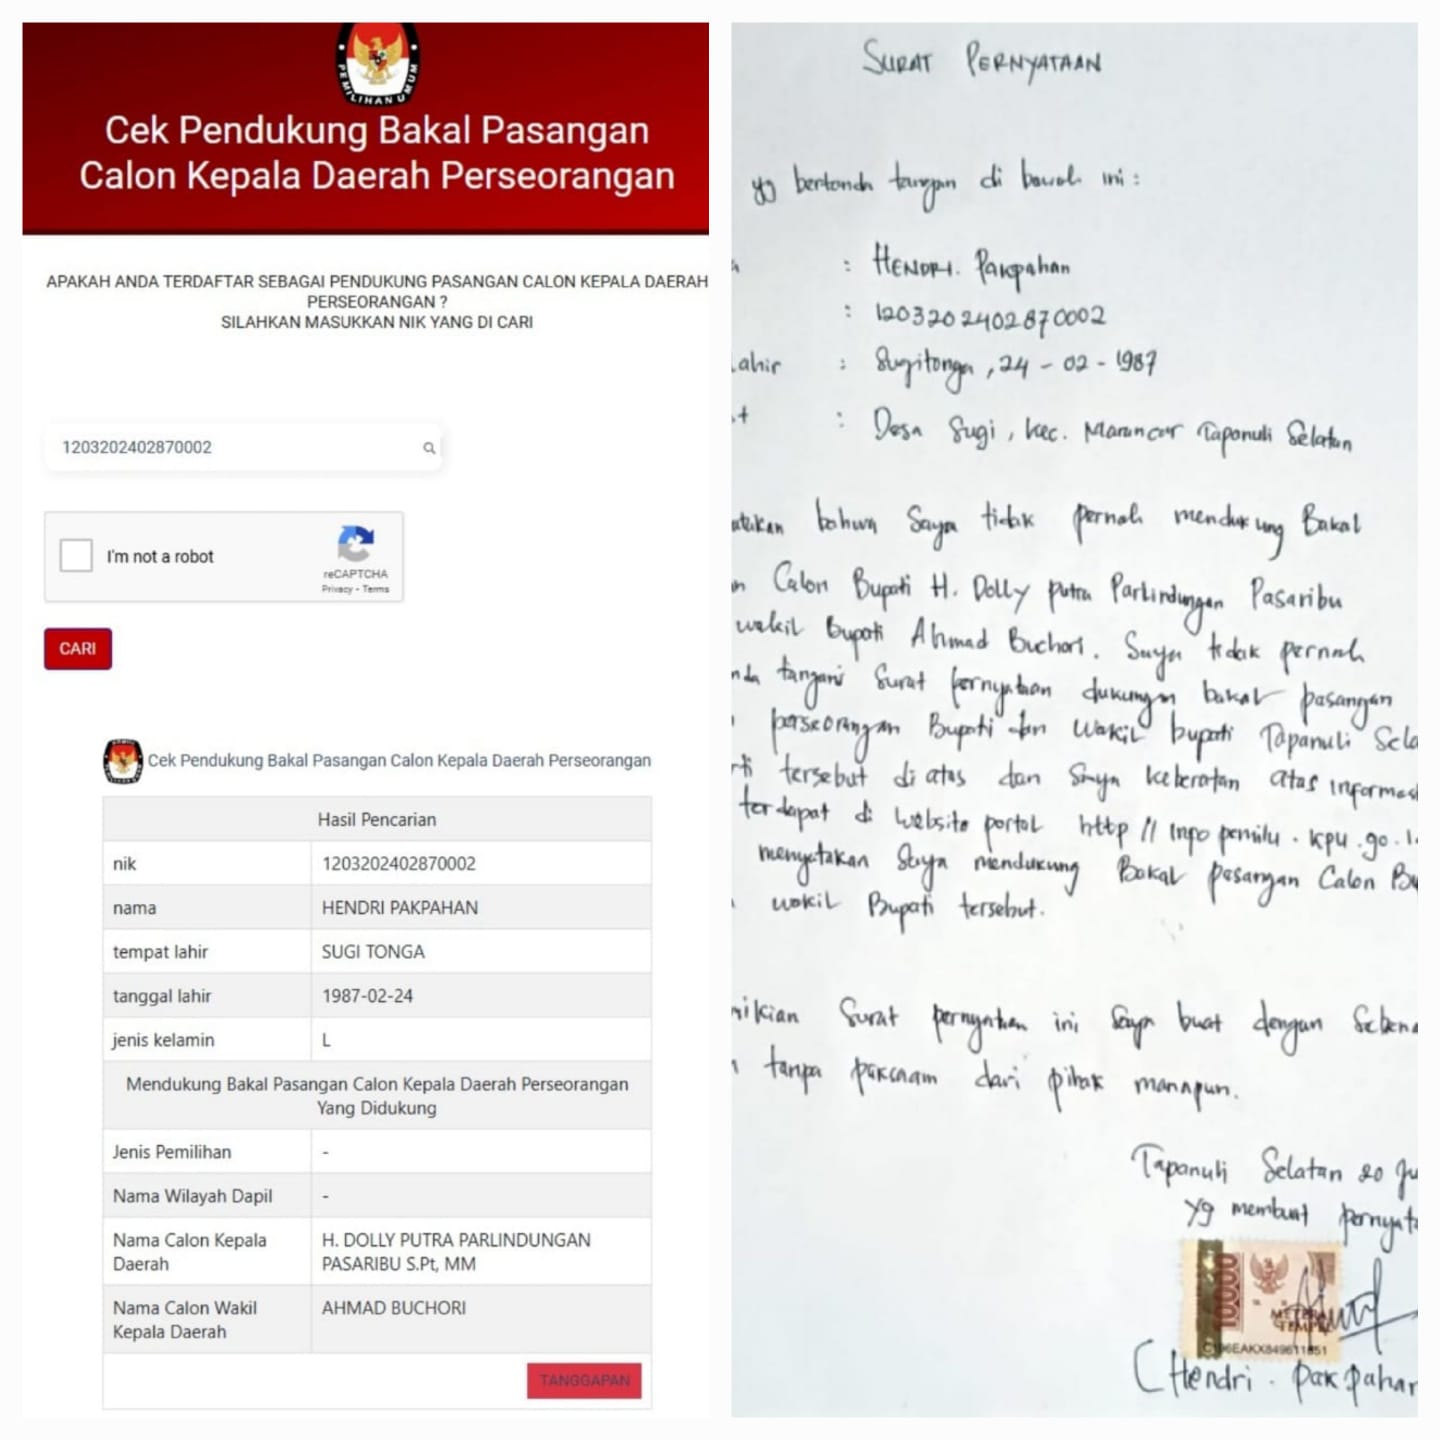 PEMILIHAN UMUM
Cek Pendukung Bakal Pasangan
Calon Kepala Daerah Perseorangan
APAKAH ANDA TERDAFTAR SEBAGAI PENDUKUNG PASANGAN CALON KEPALA DAERAH
PERSEORANGAN ?
SILAHKAN MASUKKAN NIK YANG DI CARI
1203202402870002
I'm not a robot
reCAPTCHA
Privacy - Terms
CARI
Cek Pendukung Bakal Pasangan Calon Kepala Daerah Perseorangan
Hasil Pencarian
nik 1203202402870002
nama HENDRI PAKPAHAN
tempat lahir SUGI TONGA
tanggal lahir 1987-02-24
jenis kelamin L
Mendukung Bakal Pasangan Calon Kepala Daerah Perseorangan
Yang Didukung
Jenis Pemilihan -
Nama Wilayah Dapil -
Nama Calon Kepala
Daerah
H. DOLLY PUTRA PARLINDUNGAN
PASARIBU S.Pt, MM
Nama Calon Wakil
Kepala Daerah
AHMAD BUCHORI
TANGGAPAN
SURAT PERNYATAAN
yg bertanda tangan di bawah ini :
: HENDRI. Pakpahan
: 1203202402870002
Lahir : Sugitonga, 24-02-1987
: Desa Sugi, Kec. Marancar Tapanuli Selatan
bahwa Saya tidak pernah mendukung Bakal
Calon Bupati H. Dolly Putra Parlindungan Pasaribu
wakil Bupati Ahmad Buchori. Saya tidak pernah
tangani Surat pernyataan dukungan bakal pasangan
perseorangan Bupati dan Wakil bupati Tapanuli Sela
tersebut di atas dan Saya keberatan atas informas
terdapat di website portal http // Info pemilu . kpu .go.
menyatakan Saya mendukung Bakal pasangan Calon Bu
wakil Bupati tersebut.
mikian Surat pernyataan ini Saya buat dengan Seben
tanpa paksaan dari pihak manapun.
Tapanuli Selatan 20 Ju
yg membuat pernyat
10000
METERAI
TEMPEL
(Hendri . pakpahan